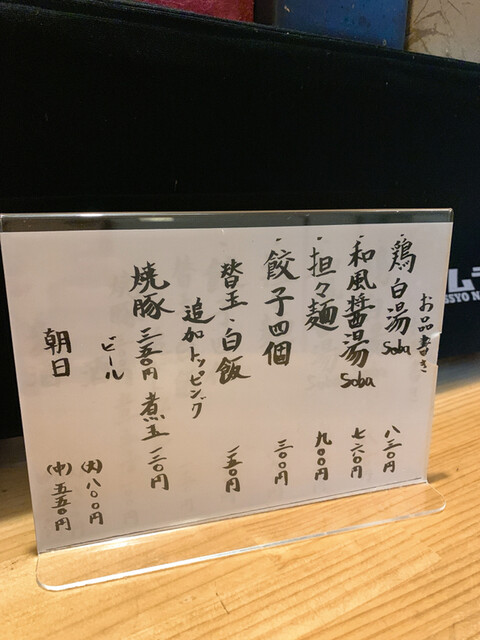 お品書き
・鶏白湯Soba 八三〇円
・和風醤湯Soba 七六〇円
・担々麺 九〇〇円
・餃子四個 三〇〇円
替玉・白飯 一五〇円
追加トッピング
焼豚 三五〇円 煮玉 一二〇円
ビール
(大)八〇〇円
朝日 (中)五五〇円